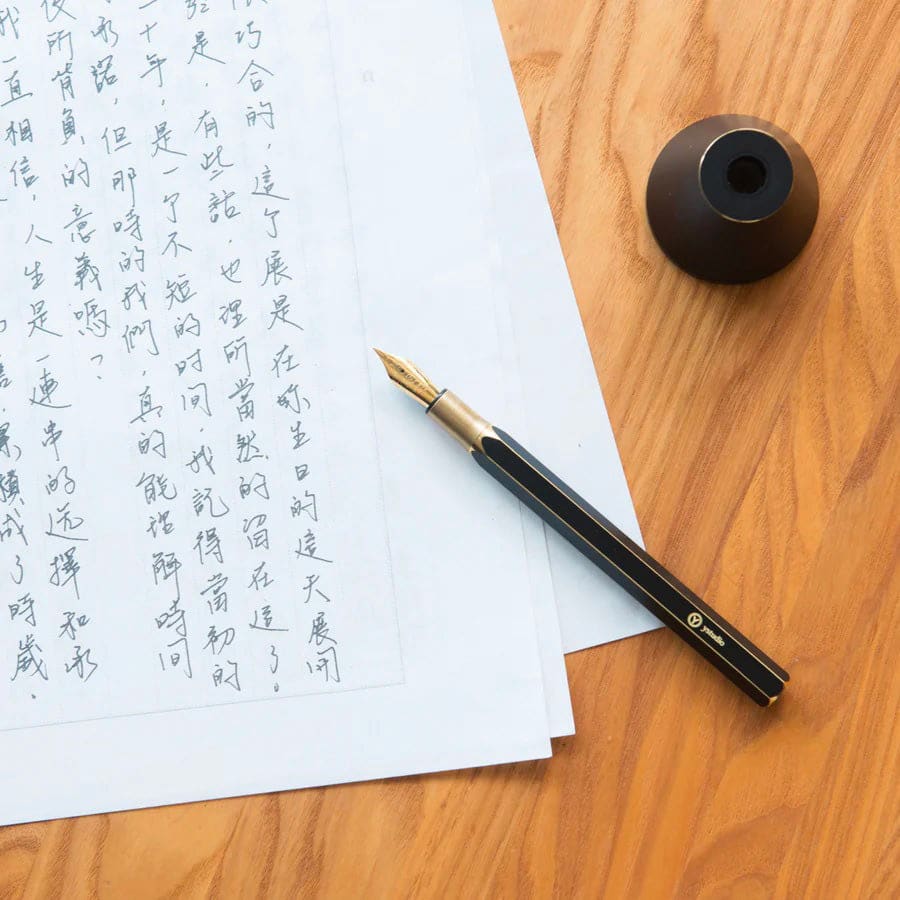 很巧合的,這个展是在妳生日的這天展開
是,有些話,也理所當然的留在這了。
二十年,是一个不短的时间,我記得當初的
承諾,但那時的我們,真的能理解時間
後所背負的意義嗎?
我一直相信,人生是一連串的選擇和承
累積成了時歲、
Y ystudio